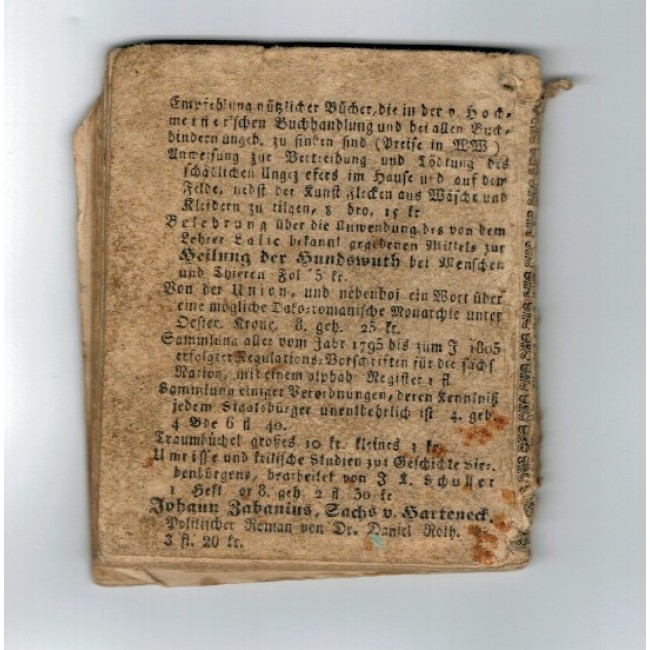 Empfehlung nützlicher Bücher, die in der v. Hoch-
meister'schen Buchhandlung und bei allen Buch-
bindern ungeb. zu finden sind (Preise in WW)
Anweisung zur Vertreibung und Tödtung des
schädlichen Ungeziefers im Hause und auf dem
Felde, nebst der Kunst Flecken aus Wäsche und
Kleidern zu tilgen, 8 bro. 15 kr
Belehrung über die Anwendung des von dem
Lehrer Lalic bekannt gegebenen Mittels zur
Heilung der Hundswuth bei Menschen
und Thieren Fol 5 kr.
Von der Union, und nebenbei ein Wort über
eine mögliche Dako-romanische Monarchie unter
Oester. Krone. 8. geh. 25 kr.
Sammlung aller vom Jahr 1795 bis zum J 1805
erfolgter Regulations-Vorschriften für die sächs
Nation, mit einem alphab Register 1 fl
Sammlung einiger Verordnungen, deren Kenntniß
jedem Staatsbürger unentbehrlich ist 4. geb
4 Bde 6 fl 40.
Traumbüchel großes 10 kr. kleines 3 kr.
Umrisse und kritische Studien zur Geschichte Sie-
benbürgens, bearbeitet von J K. Schuller
1 Heft gr 8. geh 2 fl 30 kr
Johann Zabanius, Sachs v. Harteneck.
Politischer Roman von Dr. Daniel Roth.
3 fl. 20 kr.